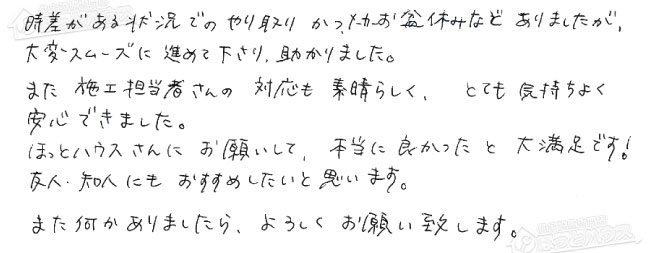 時差がある状況でのやり取り かつ、メーカーお盆休みなど ありましたが、
大変スムーズに 進めて下さり、助かりました。
また 施工担当者さんの 対応も 素晴らしく、 とても 気持ちよく
安心できました。
ほっとハウスさんに お願いして、 本当に 良かったと 大満足です!
友人・知人にも おすすめしたいと思います。
また何かありましたら、よろしく お願い致します。